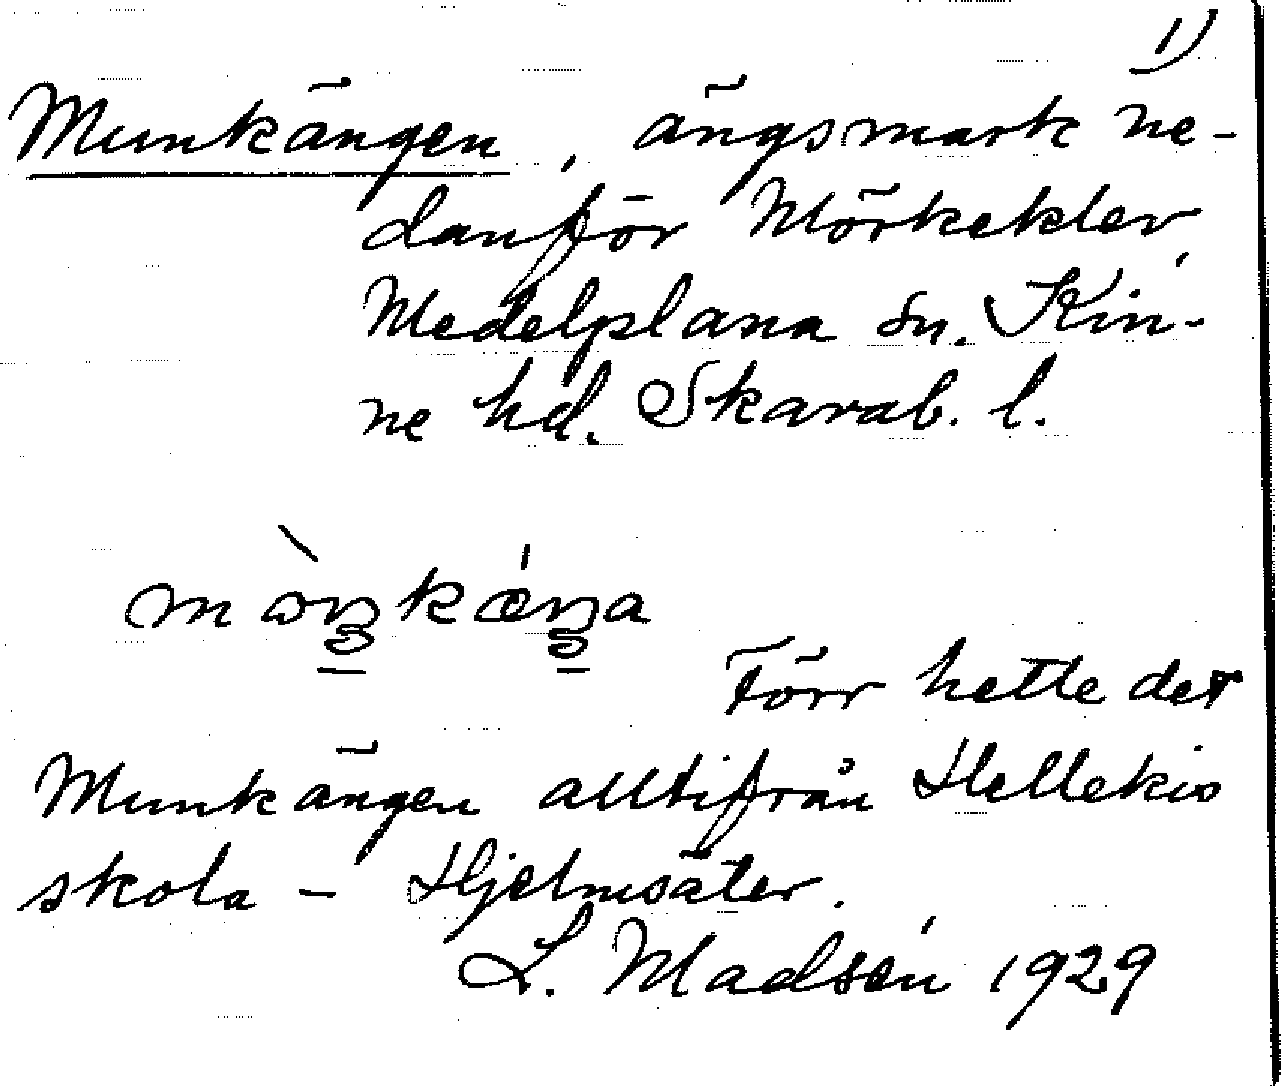 1)
Munkängen, ängsmark ne-
danför Mörkeklev,
Medelplana sn. Kin-
ne hd. Skarab. l.
Förr hette det
Munkängen alltifrån Hellekis
skola – Hjelmsäter.
L. Madsén 1929